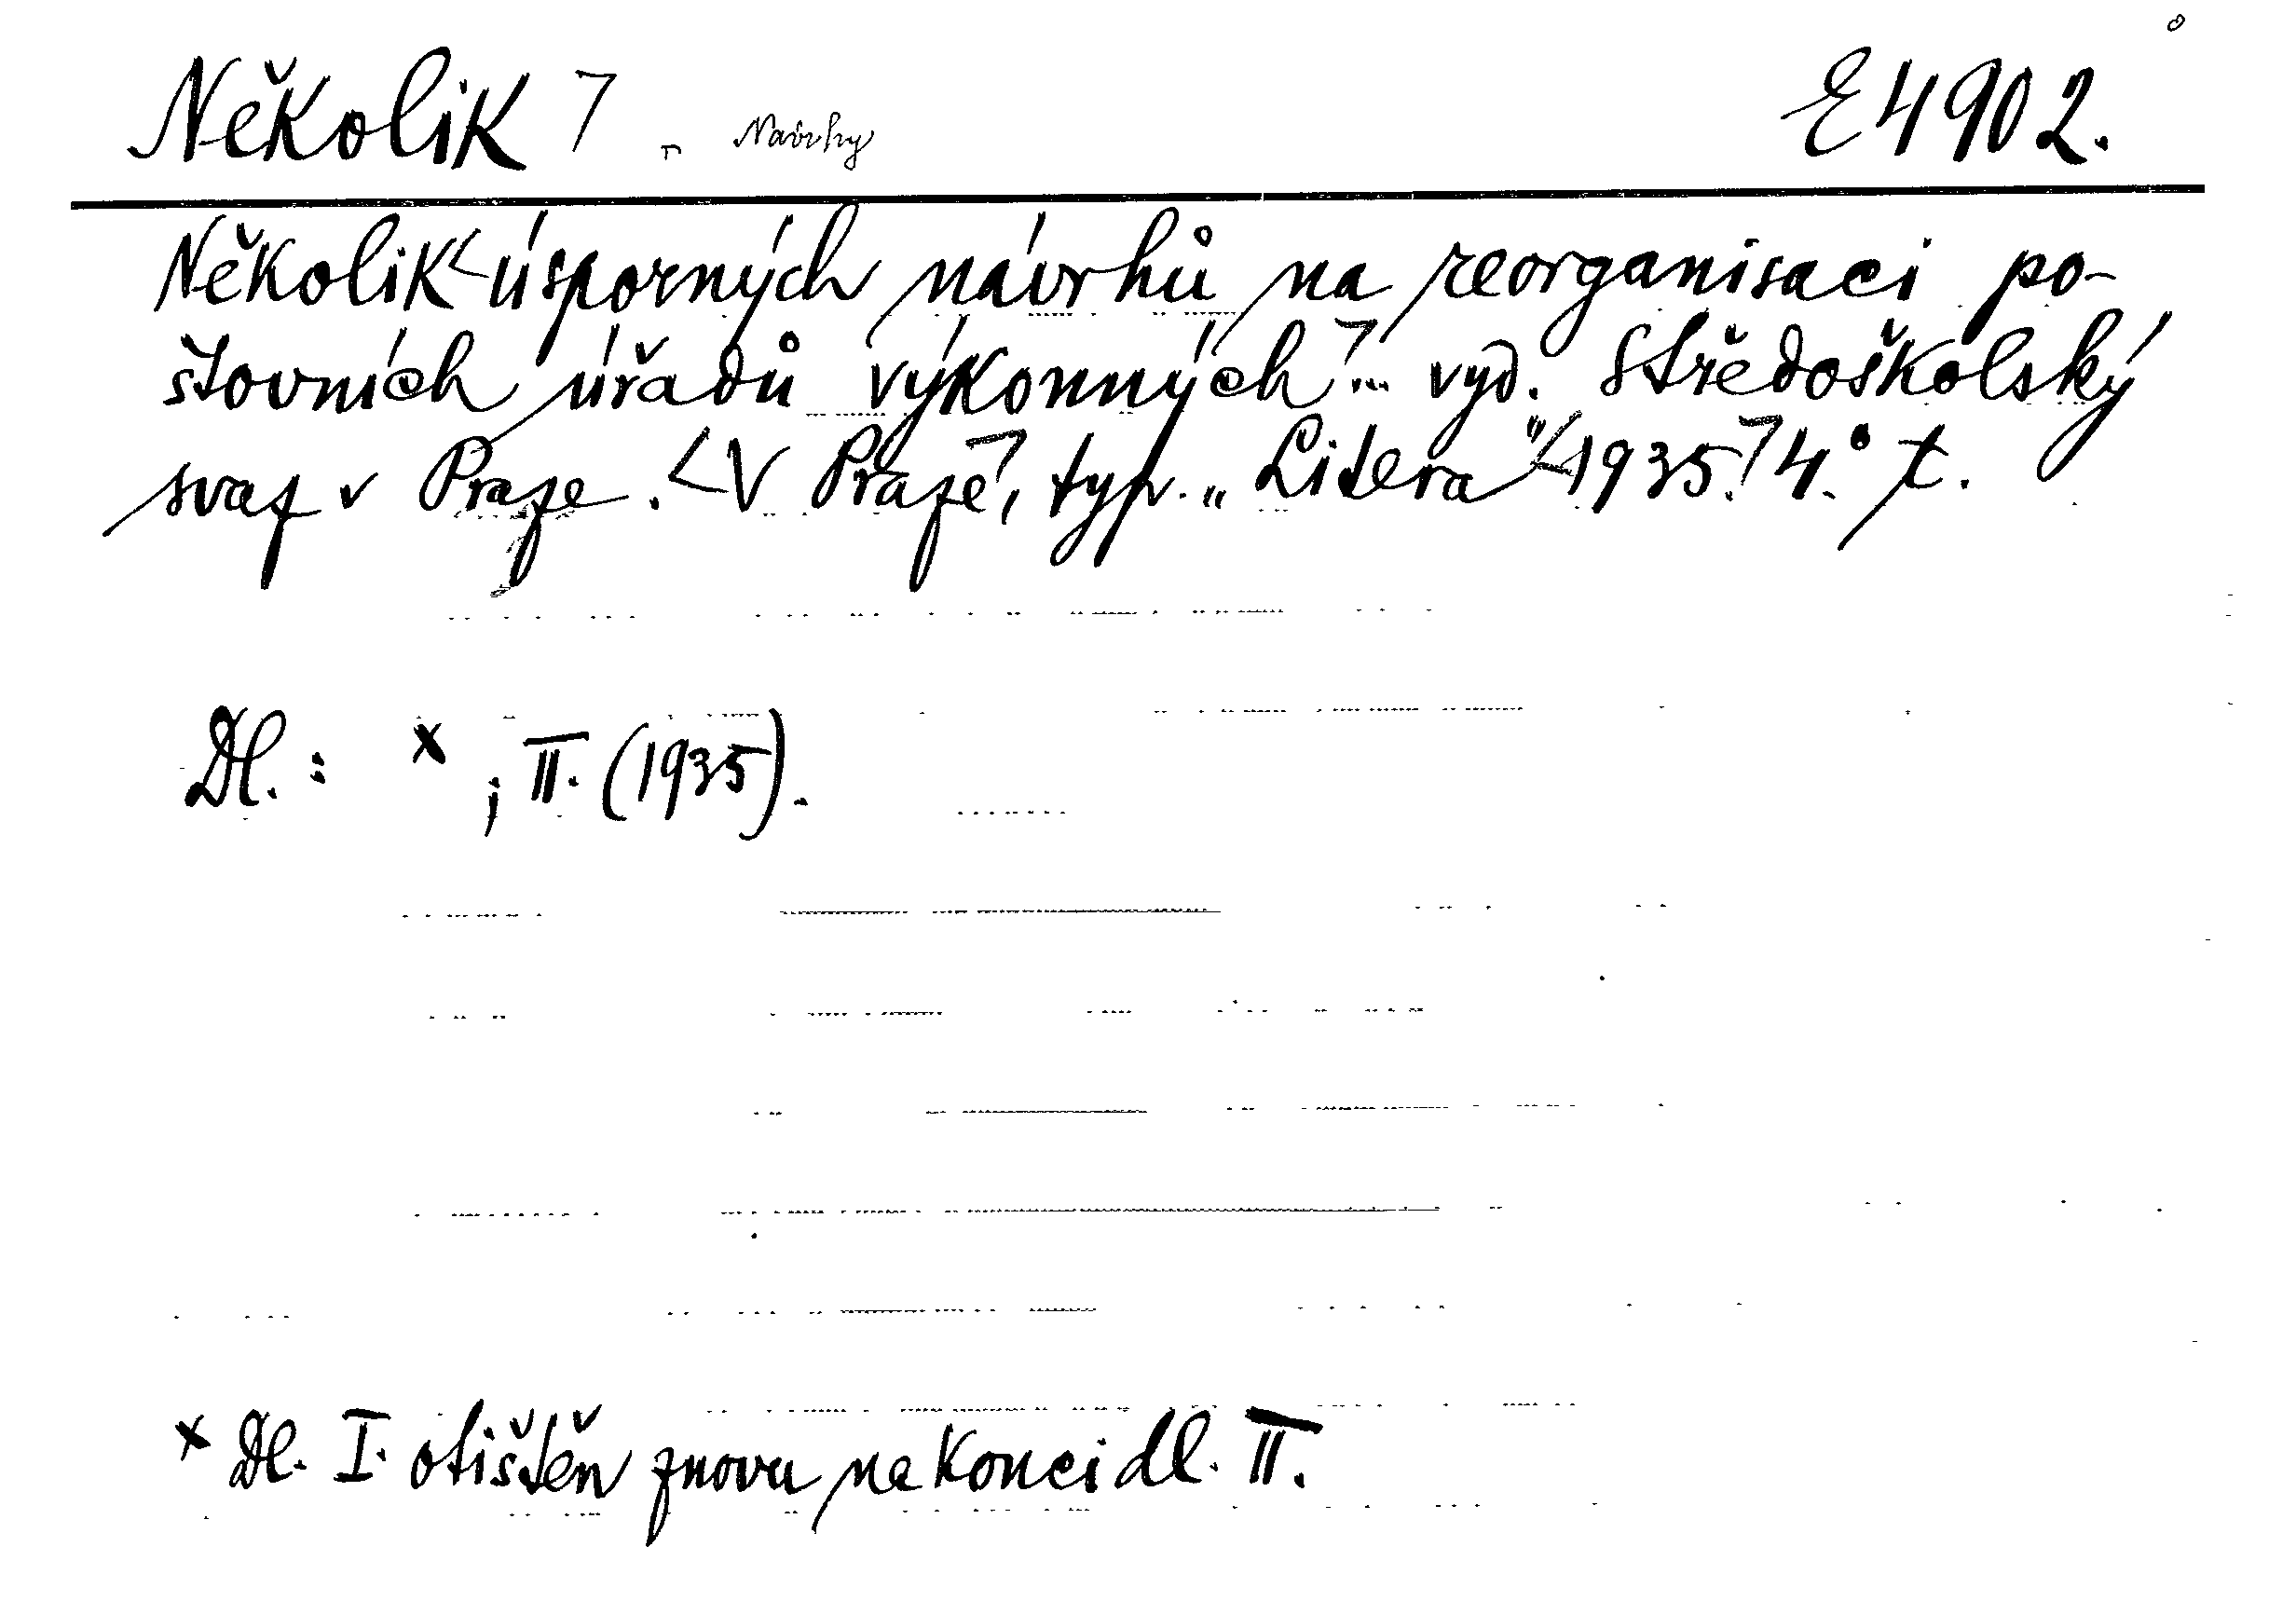 Několik 7 Návrhy E4902.
Několik úsporných návrhů na reorganisaci po-
štovních úřadů výkonných ... vyd. Středoškolský
svaz v Praze. <V Praze>, typ. „Litera" <1935.> 4.° t.
Dl.: x, II. (1935).
x Dl. I. otištěn znovu na konci dl. II.